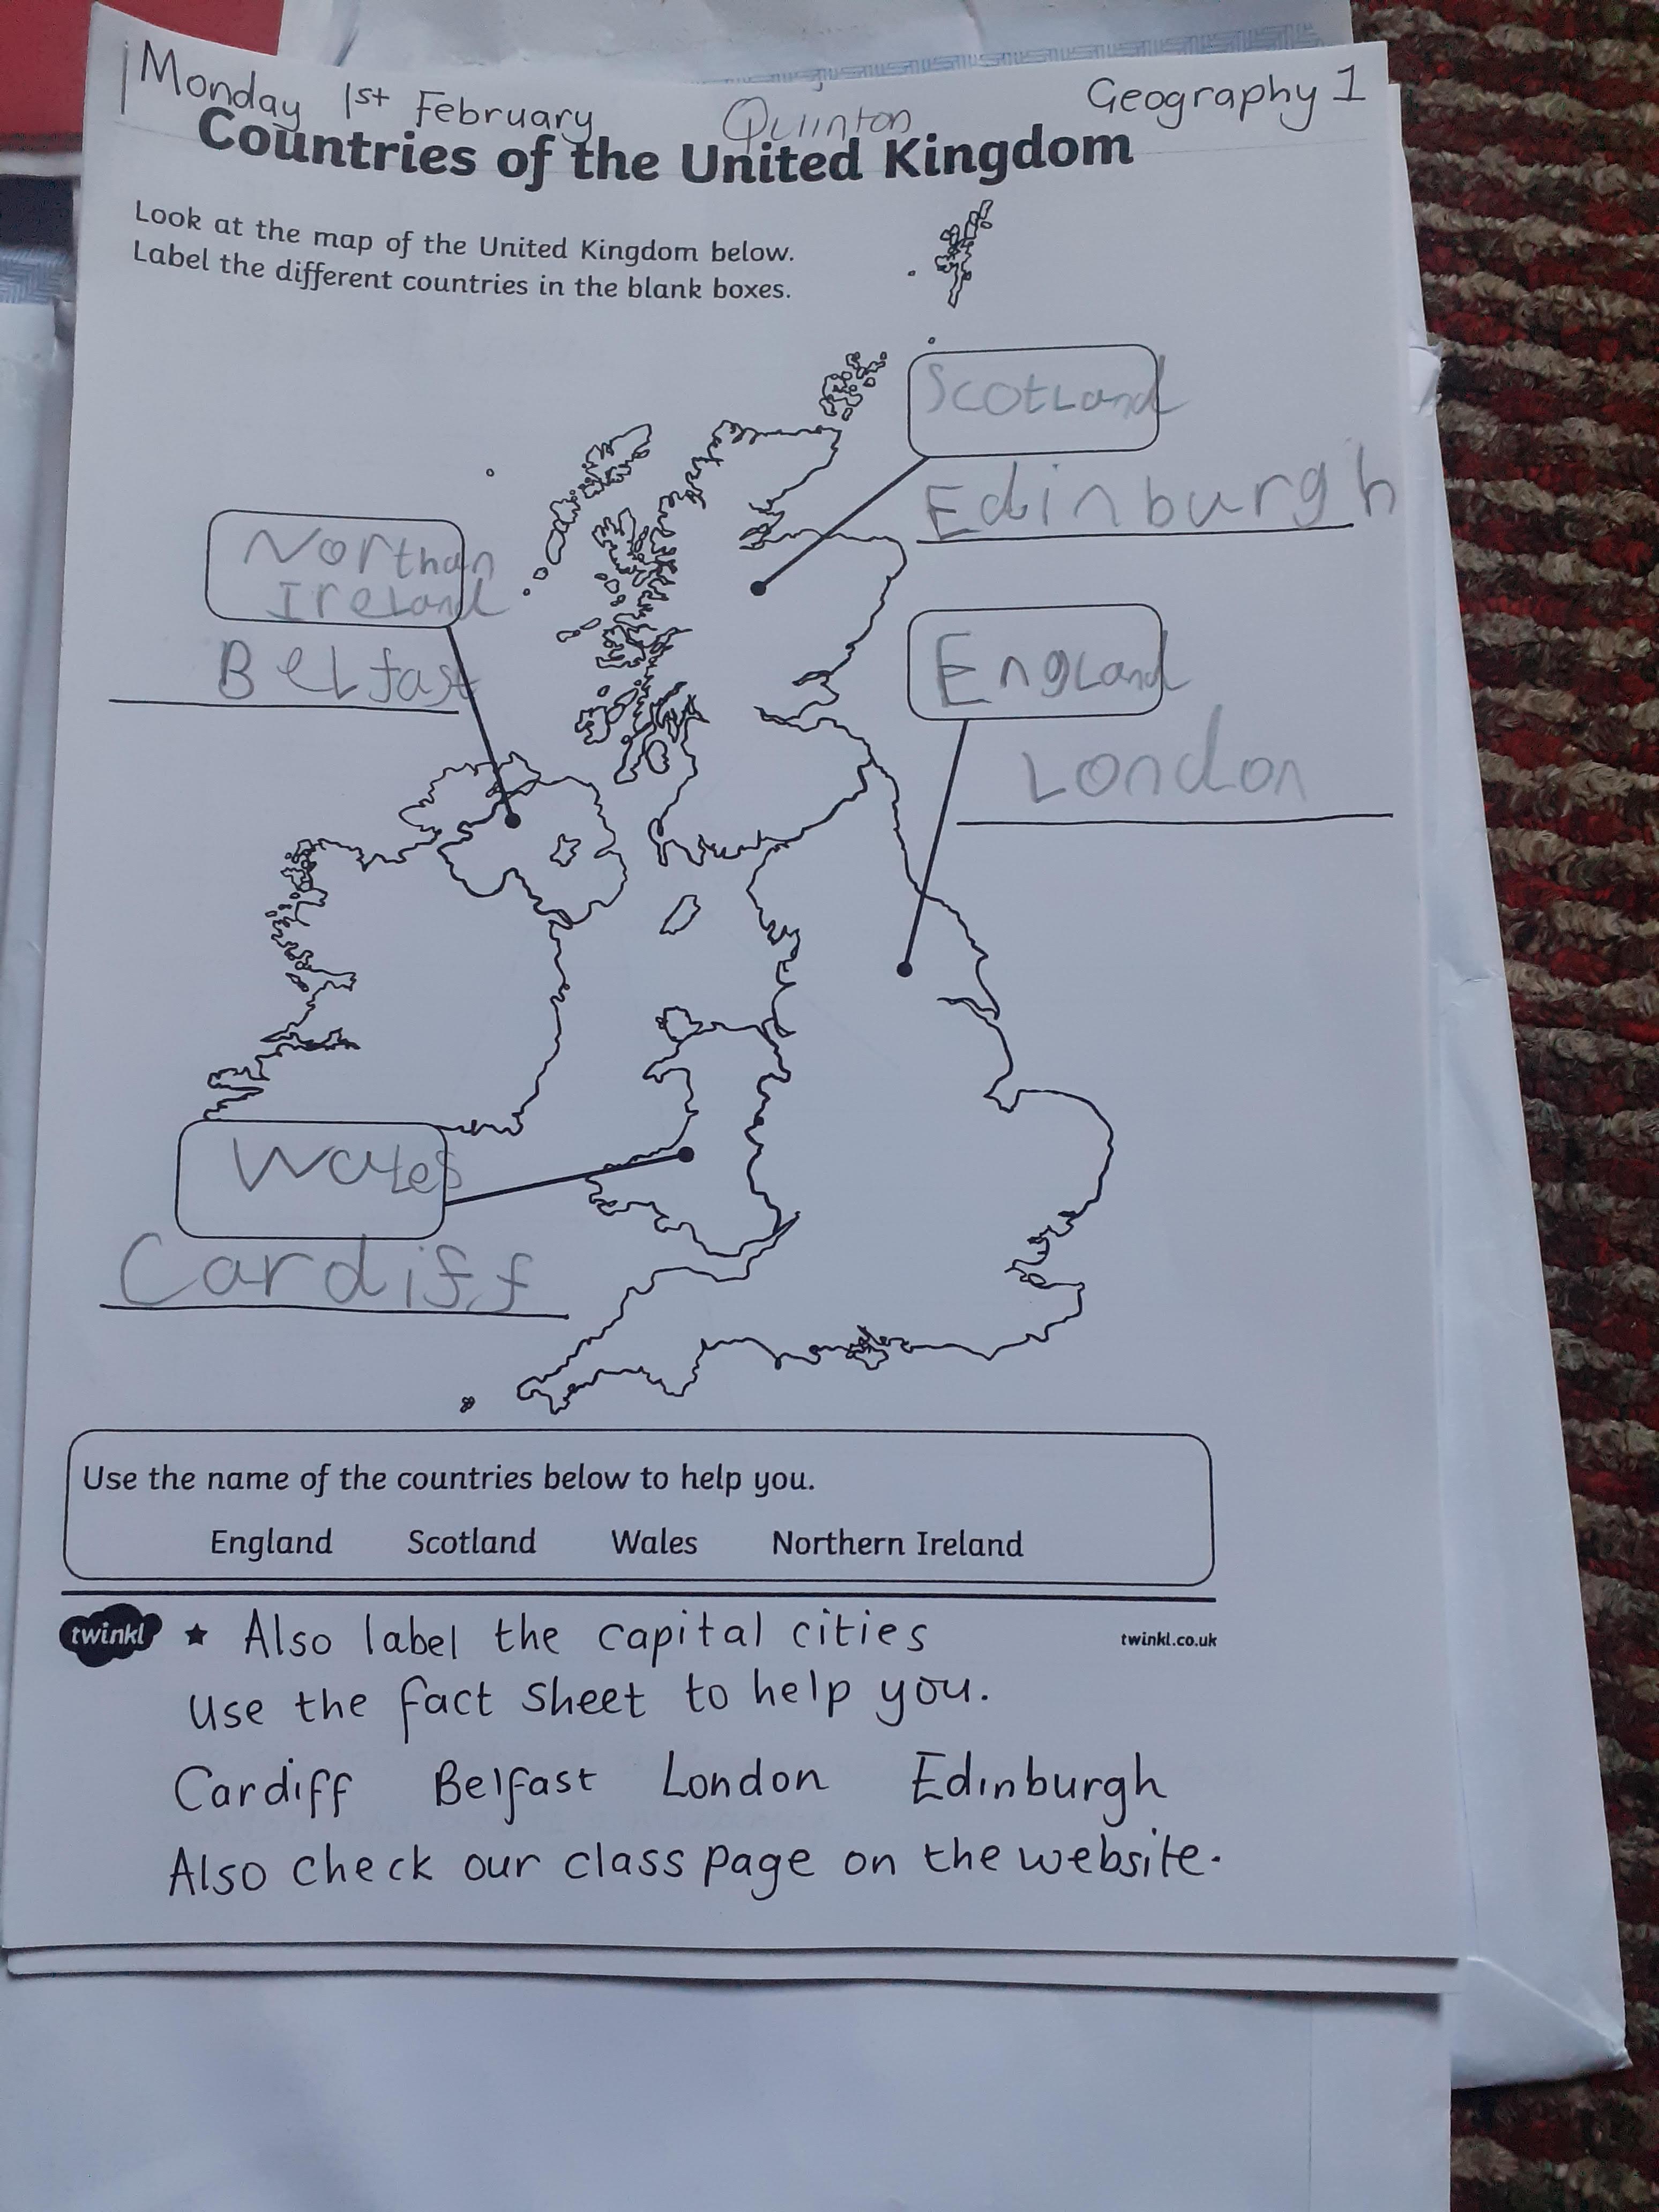 Monday 1st February Quinton Geography 1
Countries of the United Kingdom
Look at the map of the United Kingdom below.
Label the different countries in the blank boxes.
Scotland
Edinburgh
Northan
Ireland
Belfast
England
London
Wales
Cardiff
Use the name of the countries below to help you.
England Scotland Wales Northern Ireland
twinkl ★ Also label the capital cities twinkl.co.uk
Use the fact sheet to help you.
Cardiff Belfast London Edinburgh
Also check our class page on the website.